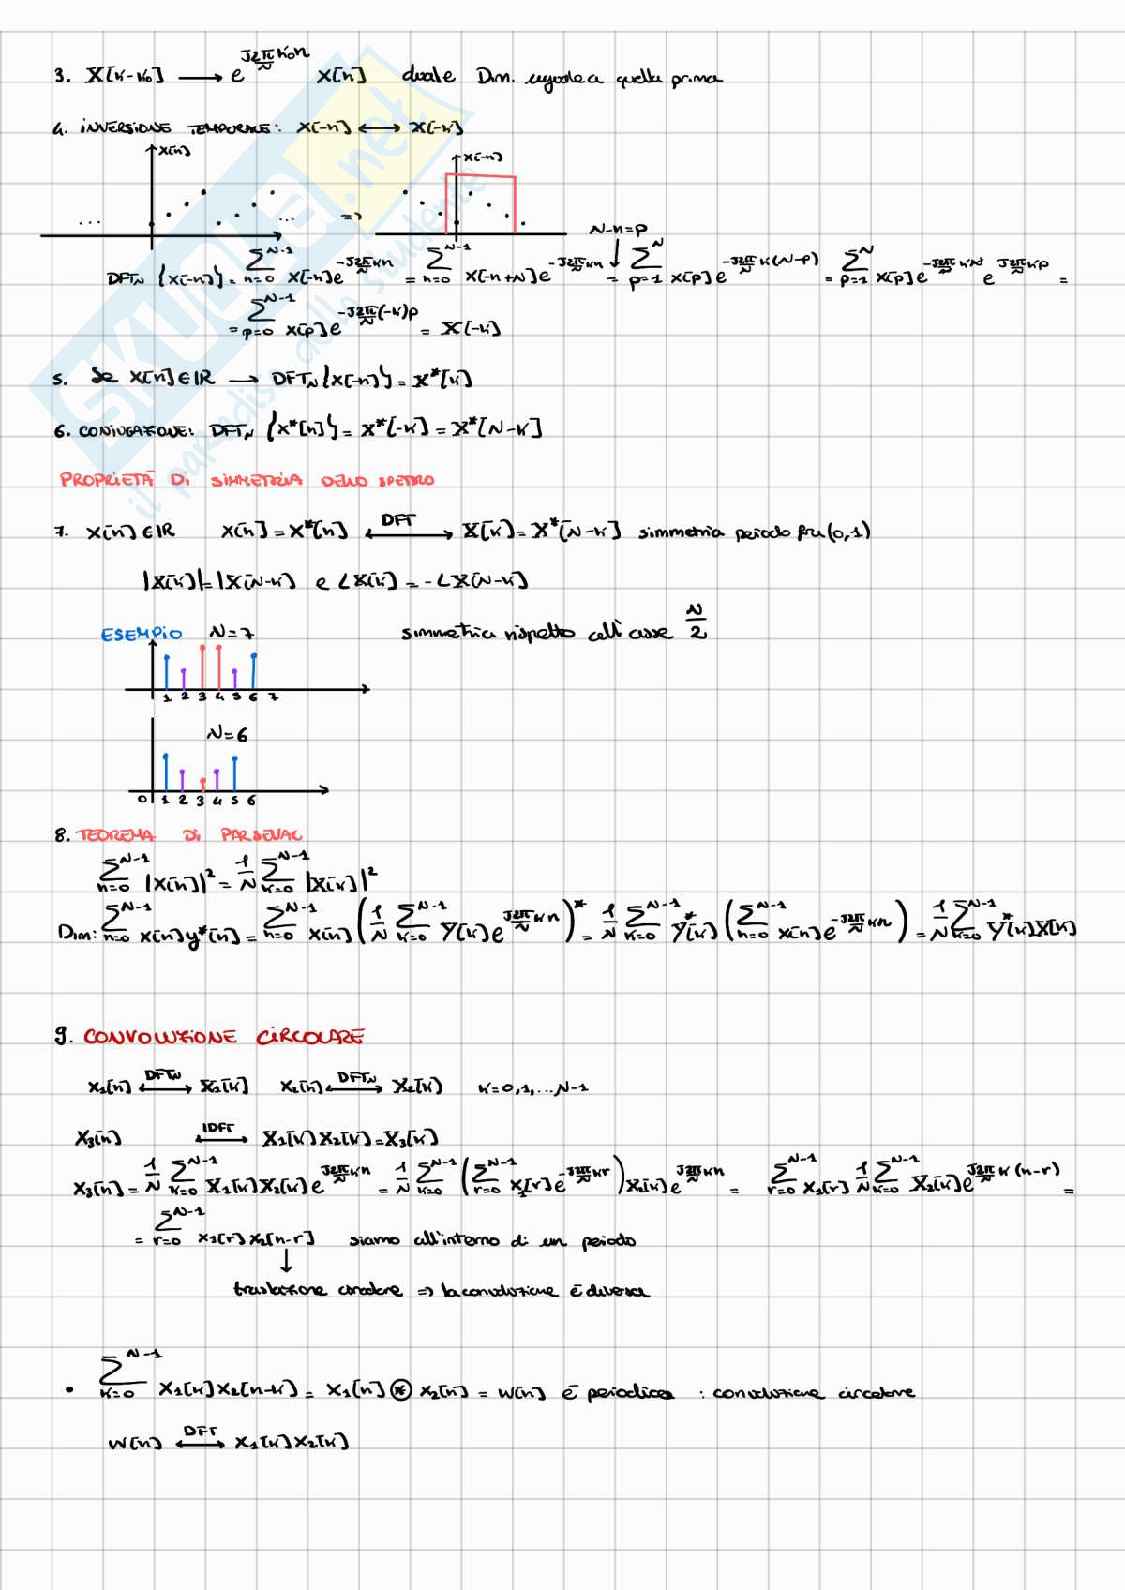 3. X[k-k₀] ⟶ e^{j2π/N k₀n} x[n] duale Dim. uguale a quella prima
4. INVERSIONE TEMPORALE: x[-n] ⟷ X[-k]
x[n]
x[-n]
... ... ⇒
N-n=p
DFT_N {x[-n]} = Σ_{n=0}^{N-1} x[-n] e^{-j2π/N kn} = Σ_{n=0}^{N-1} x[-n+N] e^{-j2π/N kn} = Σ_{p=1}^{N} x[p] e^{-j2π/N k(N-p)} = Σ_{p=1}^{N} x[p] e^{-j2π/N kN} e^{j2π/N kp} =
= Σ_{p=0}^{N-1} x[p] e^{-j2π/N (-k)p} = X[-k]
5. Se x[n] ∈ IR ⟶ DFT_N {x[-n]} = X*[k]
6. CONIUGAZIONE: DFT_N {x*[n]} = X*[-k] = X*[N-k]
PROPRIETÀ DI SIMMETRIA DELLO SPETTRO
7. x[n] ∈ IR x[n] = x*[n] ⟷^{DFT} X[k] = X*[N-k] simmetria periodo fra (0,1)
|X[k]| = |X[N-k] e ∠X[k] = -∠X[N-k]
ESEMPIO N=7 simmetria rispetto all'asse N/2
1 2 3 4 5 6 7
N=6
0 1 2 3 4 5 6
8. TEOREMA DI PARSEVAL
Σ_{n=0}^{N-1} |x[n]|² = 1/N Σ_{k=0}^{N-1} |X[k]|²
Dim: Σ_{n=0}^{N-1} x[n]y*[n] = Σ_{n=0}^{N-1} x[n] (1/N Σ_{k=0}^{N-1} Y[k] e^{j2π/N kn})* = 1/N Σ_{k=0}^{N-1} Y*[k] (Σ_{n=0}^{N-1} x[n] e^{-j2π/N kn}) = 1/N Σ_{k=0}^{N-1} Y*[k]X[k]
9. CONVOLUZIONE CIRCOLARE
x₁[n] ⟷^{DFT_N} X₁[k] x₂[n] ⟷^{DFT_N} X₂[k] k=0,1,...N-1
x₃[n] ⟷^{IDFT} X₁[k]X₂[k]=X₃[k]
x₃[n] = 1/N Σ_{k=0}^{N-1} X₁[k]X₂[k] e^{j2π/N kn} = 1/N Σ_{k=0}^{N-1} (Σ_{r=0}^{N-1} x₁[r] e^{-j2π/N kr}) X₂[k] e^{j2π/N kn} = Σ_{r=0}^{N-1} x₁[r] 1/N Σ_{k=0}^{N-1} X₂[k] e^{j2π/N k(n-r)} =
= Σ_{r=0}^{N-1} x₁[r] x₂[n-r] siamo all'interno di un periodo
↓
traslazione circolare ⇒ la convoluzione è diversa
• Σ_{k=0}^{N-1} x₁[k]x₂[n-k] = x₁[n] ⊛ x₂[n] = w[n] è periodica : convoluzione circolare
w[n] ⟷^{DFT} X₁[k]X₂[k]
SKUOLA.net
il paradiso dello studente